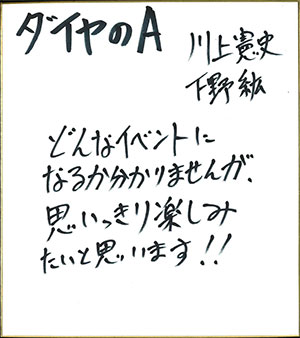 ダイヤのA
川上憲史
下野紘
どんなイベントに
なるか分かりませんが、
思いっきり楽しみ
たいと思います!!